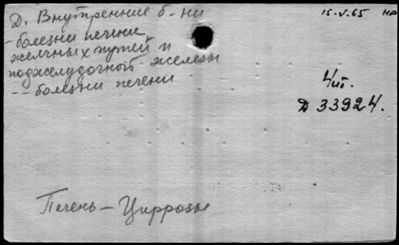 Д. Внутренние б-ни
- болезни печени,
желчных путей и
поджелудочной железы
-- болезни печени
15.V.65 НР
4/VI.
Д 33924.
Печень – Циррозы